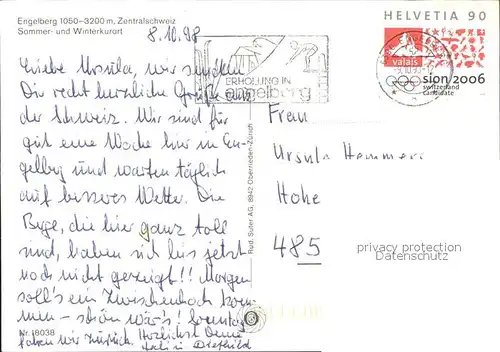 Engelberg 1050–3200 m, Zentralschweiz
Sommer- und Winterkurort
8.10.98
Liebe Ursula, wir senden
Dir recht herzliche Grüsse aus
der Schweiz. Wir sind für
gut eine Woche hier in En-
gelberg und warten täglich
auf besseres Wetter. Die
Berge, die hier ganz toll
sind, haben sich bis jetzt
noch nicht gezeigt!! Morgen
soll's ein Zwischenhoch kom-
men – schön wär's! Sonntag
fahren wir zurück. Herzlichst Deine
Nr. 18038
Rud. Suter AG, 8942 Oberrieden-Zürich
ERHOLUNG IN
engelberg
HELVETIA 90
9.10.98
valais
sion 2006
switzerland
candidate
Frau
Ursula
Hohe
485
privacy protection
Datenschutz